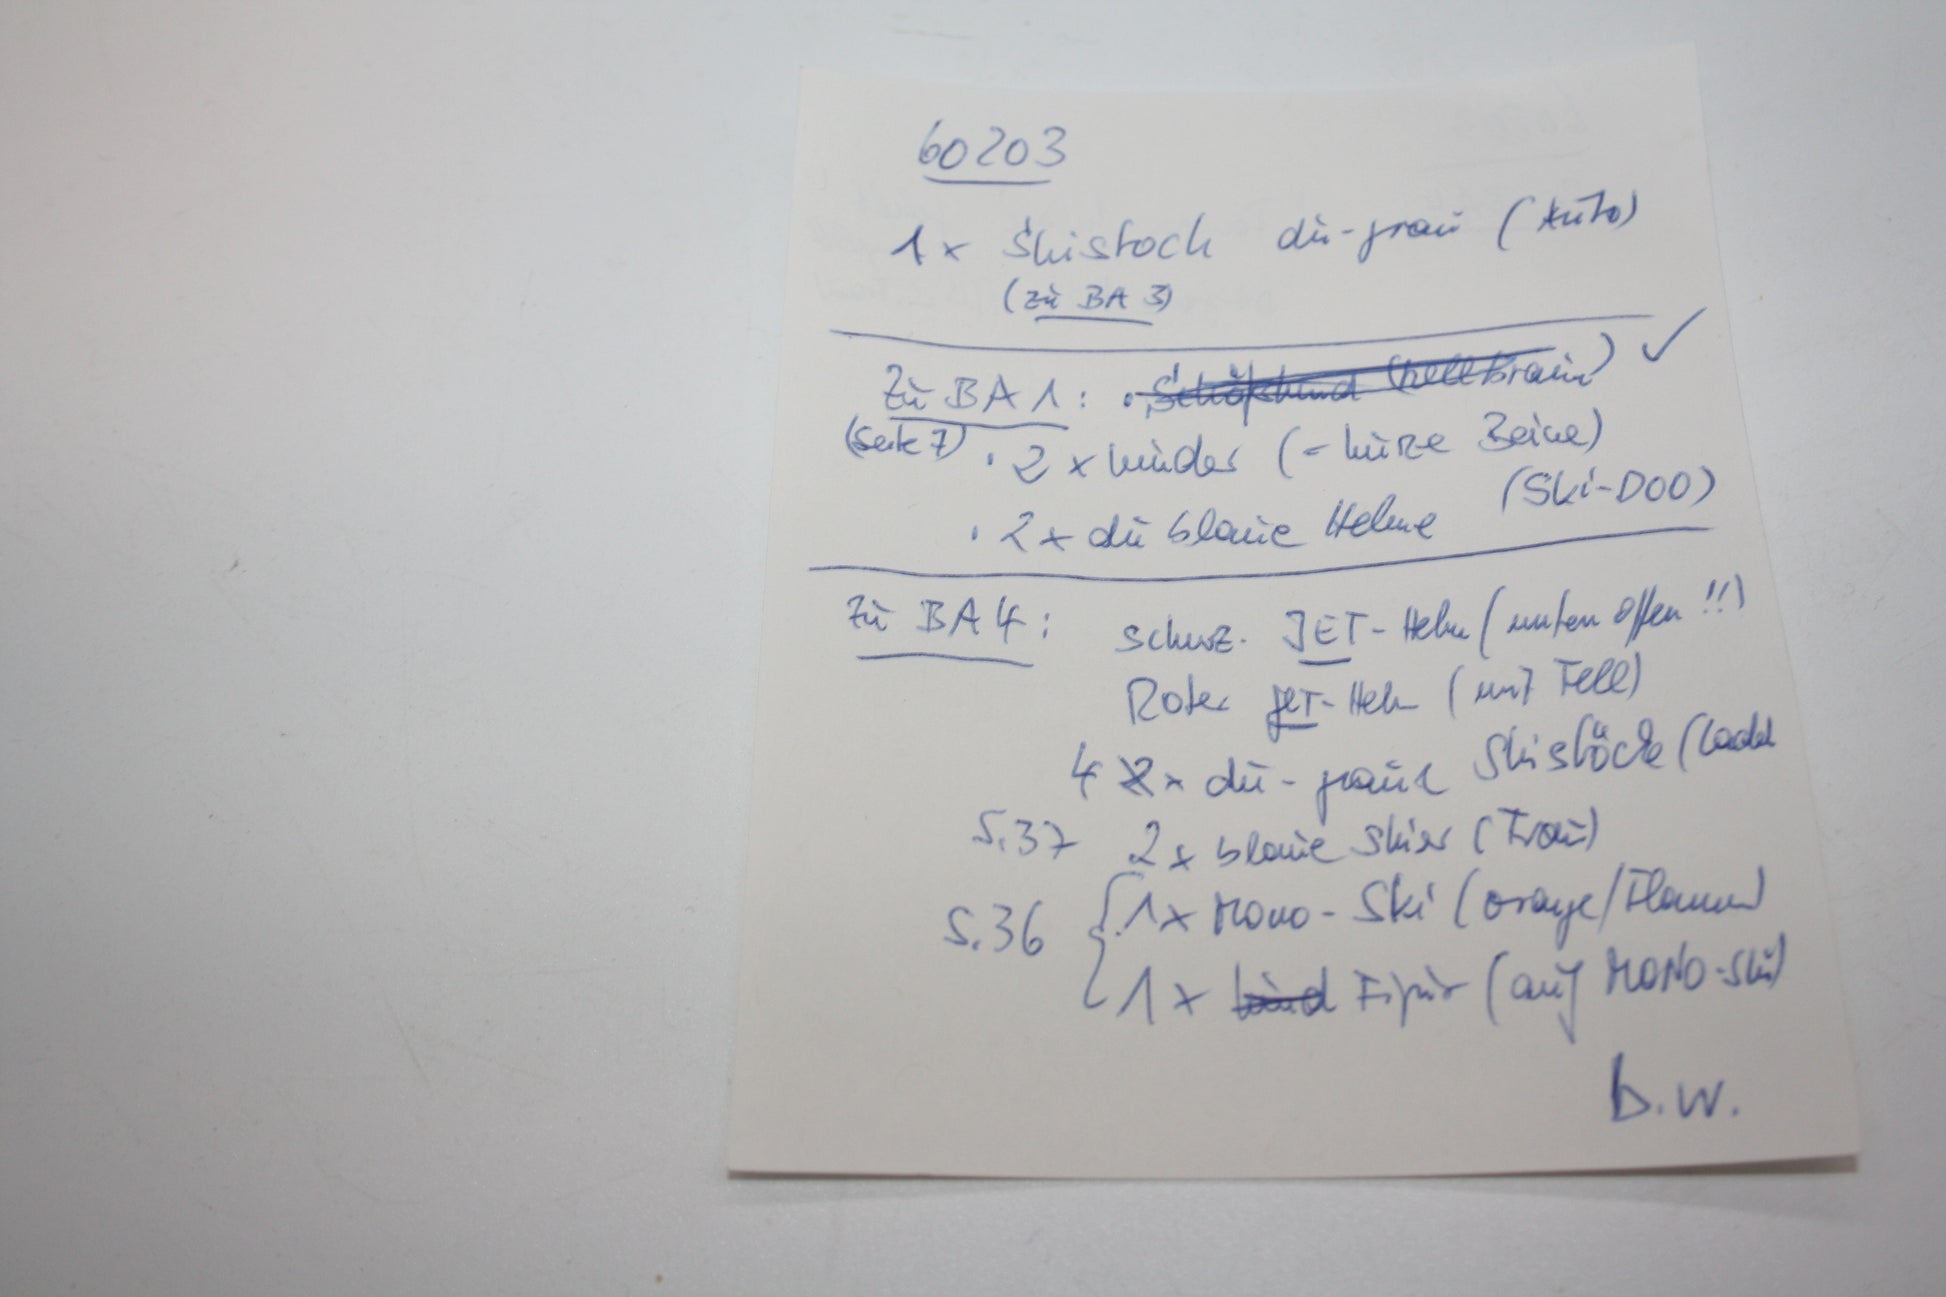 60203
1x Skistock du-grau (Auto)
(zu BA 3)
Zu BA 1: • Schoßhund (hellbraun) ✓
(Seite 7) • 2 x Kinder (= kurze Beine)
• 2x du blaue Helme (Ski-DOO)
Zu BA 4: schwz. JET-Helm (unten offen !!)
Roter JET-Helm (mit Fell)
4 2x du-graue Skistöcke
S.37 2x blaue Skier (Frau)
S.36 1x Mono-Ski (orange/Flammen)
1x Kind Figur (auf MONO-Ski)
b.w.